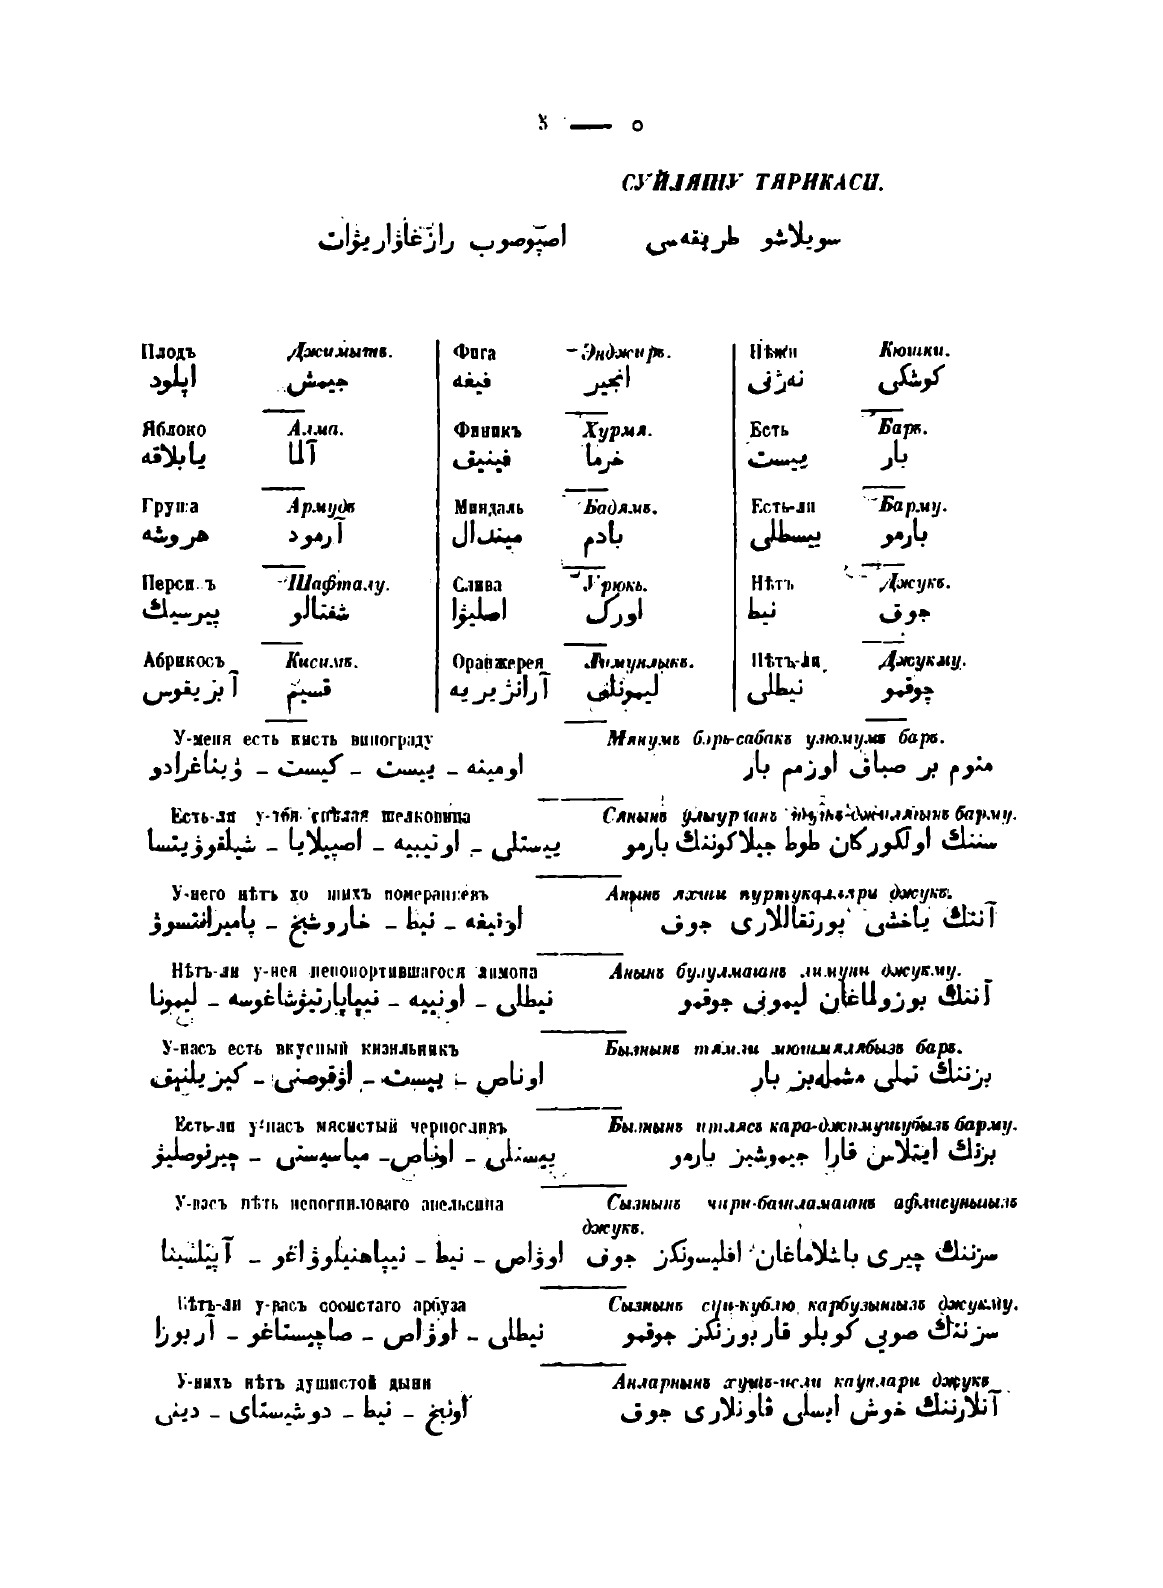 — ٥
СУЙЛЯШУ ТЯРИКАСИ.
سويلاشو طريقه‌سی اصپوصوب رازغاۋاريۋات
Плодъ Джимытв. Фига Энджирь. Кюшки.
اپلود جيمش فيغه انجير نەژنی كوشكی
Яблоко Алма. Финикъ Хурмя. Есть Барь.
يابلاقه آلما فينيق خرما ييست بار
Груша Армудь Миндаль Бадямь. Есть-ли Барму.
هروشه آرمود ميندال بادم ييسطلی بارمو
Шафталу. Слива Нѣтъ Джукъ.
پيرسيك شفتالو اصليۋا اورك نيط جوق
Абрикосъ Кисимь. Оранжерея Лимунлыкъ. Нѣтъ-ли Джукму.
آبريقوس قسيم آرانژيريه ليمونلق نيطلی جوقمو
У-меня есть кисть винограду Мянумъ бярь-сабакъ узюмумъ баръ.
اومينه - ييست - كيست - ۋيناغرادو منوم بر صباق اوزمم بار
Есть-ли у-тебя спѣлая шелковица барму.
ييستلی - اوتيبيه - اصپيلايا - شيلقوۋيتسا سننك اولكوركان طوط جيلاكوننك بارمو
У-него нѣтъ померанцевъ Анынъ яхши пуртукалляри джукъ.
اونيغه - نيط - خاروشيخ - پاميرانتسوۋ آننك ياخشی پورتقاللاری جوق
Нѣтъ-ли у-нея непопортившагося лимона Анынъ лимуни джукму.
نيطلی - اونييه - نيپاپارتيۋشاغوسه - ليمونا آننك بوزولماغان ليمونی جوقمو
У-насъ есть вкусный кизильникъ Бызнынъ тямли мюшмялябызъ баръ.
اوناص - ييست - اۋقوصنی - كيزيلنيق بزننك تملی مشمله‌بز بار
Есть-ли у-насъ мясистый черносливъ Бызнынъ итлясъ кара-джимушубызъ барму.
ييستلی - اوناص - مياسيستی - چيرنوصليۋ بزنك ايتلاس قارا جيموشبز بارمو
У-васъ нѣтъ непогнилованого апельсина Сызнынъ чири-башламашанъ афлисунынызъ
джукъ.
اوۋاص - نيط - نيپاهنيلوۋاغو - آپيلسينا سزننك چيری باشلاماغان افليسونكز جوق
Нѣтъ-ли у-васъ сочистаго арбуза Сызнынъ суи-кублю карбузынызъ джукму.
نيطلی - اوۋاص - صاچيستاغو - آربوزا سزننك صويی كوبلو قاربوزنكز جوقمو
У-нихъ нѣтъ душистой дыни Анларнынъ хушъ-исли каунлари джукъ
اونيخ - نيط - دوشيستای - دينی آنلارننك خوش ايسلی قاونلاری جوق